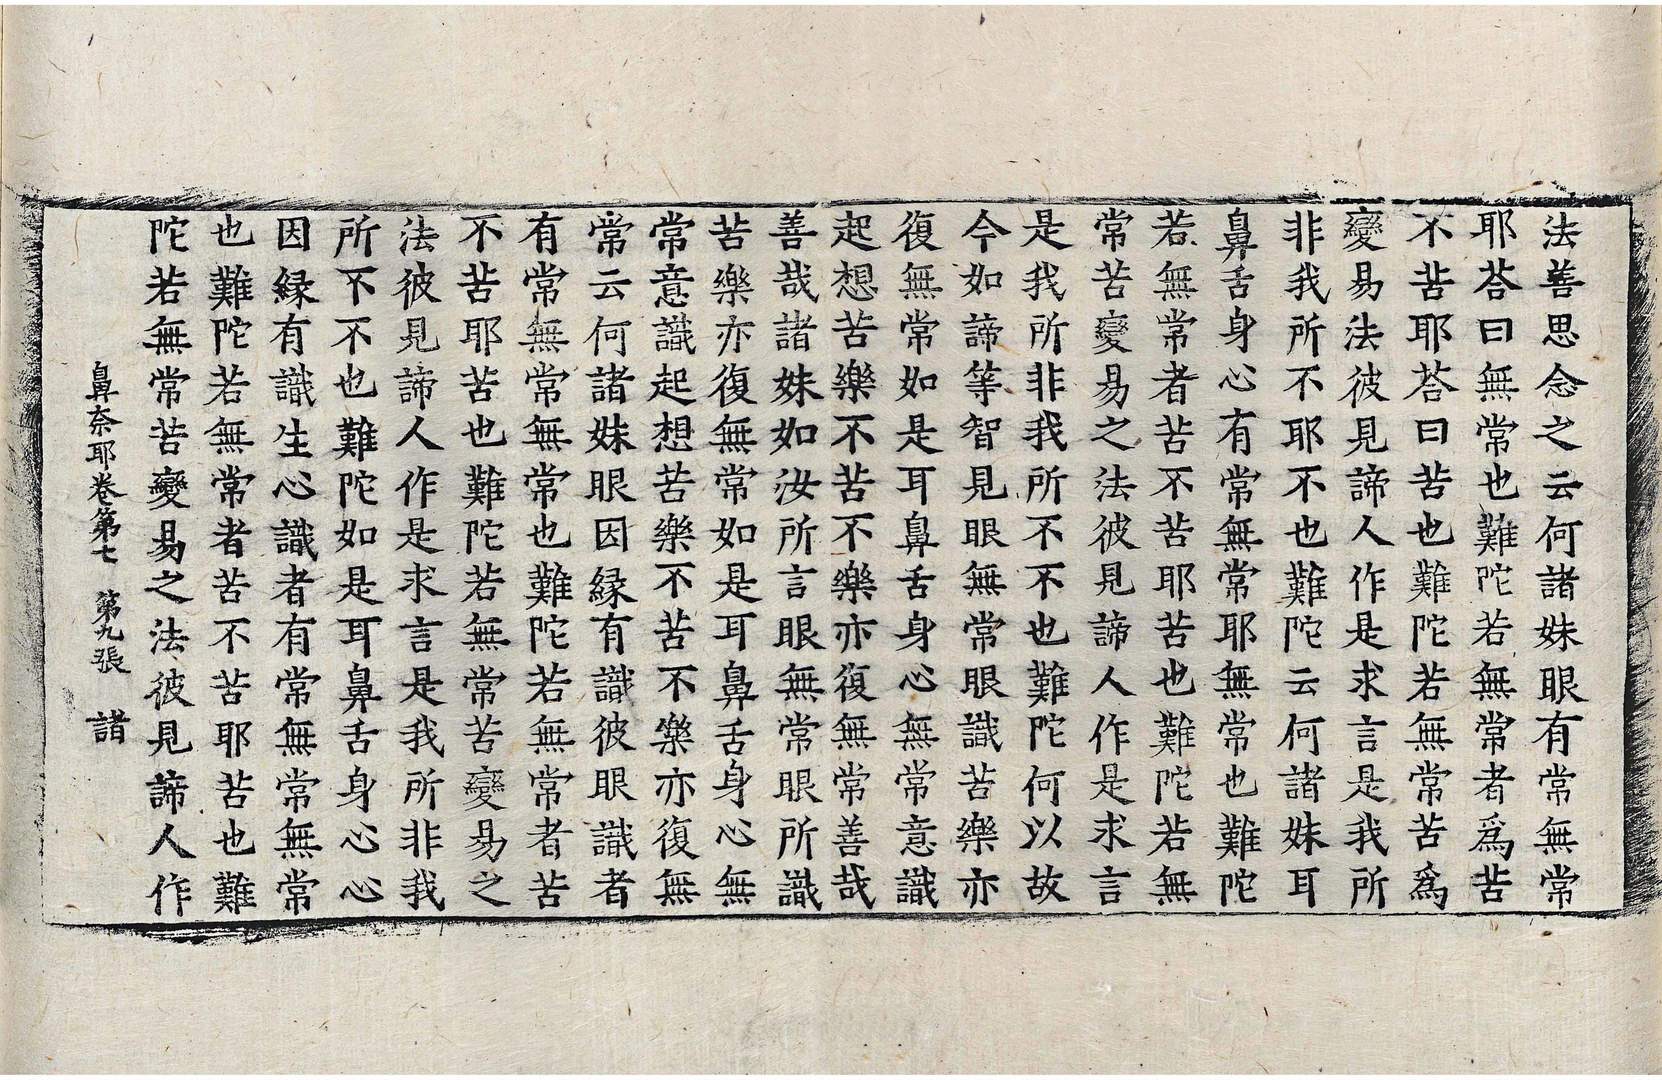 法善思念之云何諸妹眼有常無常
耶荅曰無常也難陀若無常者爲苦
不苦耶荅曰苦也難陀若無常苦爲
變易法彼見諦人作是求言是我所
非我所不耶不也難陀云何諸妹耳
鼻舌身心有常無常耶無常也難陀
若無常者苦不苦耶苦也難陀若無
常苦變易之法彼見諦人作是求言
是我所非我所不不也難陀何以故
今如諦等智見眼無常眼識苦樂亦
復無常如是耳鼻舌身心無常意識
起想苦樂不苦不樂亦復無常善哉
善哉諸妹如汝所言眼無常眼所識
苦樂亦復無常如是耳鼻舌身心無
常意識起想苦樂不苦不樂亦復無
常云何諸妹眼因縁有識彼眼識者
有常無常無常也難陀若無常者苦
不苦耶苦也難陀若無常苦變易之
法彼見諦人作是求言是我所非我
所不不也難陀如是耳鼻舌身心心
因縁有識生心識者有常無常無常
也難陀若無常者苦不苦耶苦也難
陀若無常苦變易之法彼見諦人作
鼻奈耶卷第七 第九張 諸